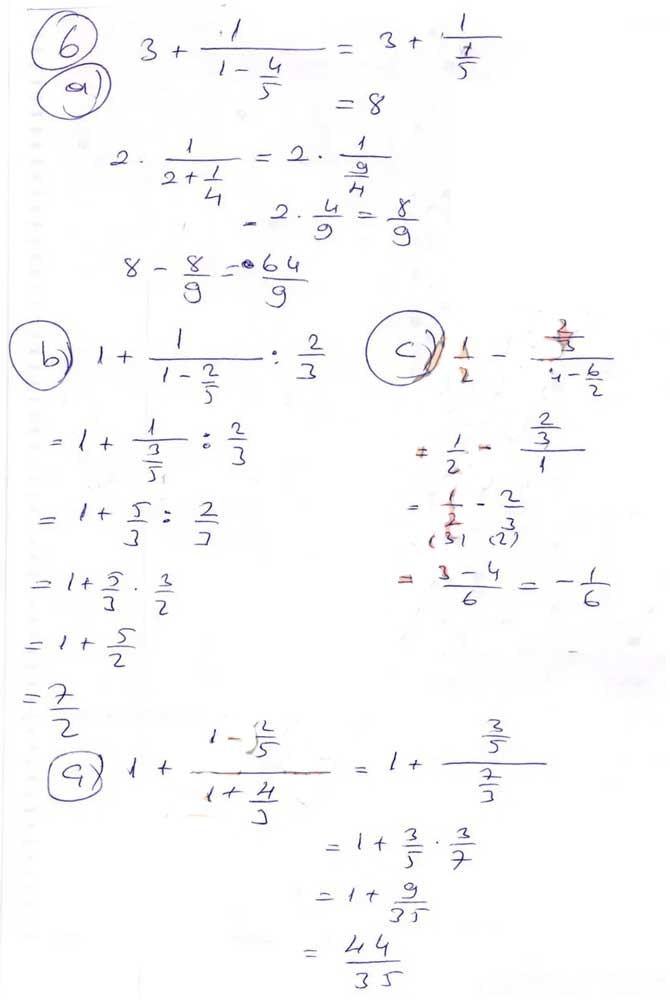 6
a) 3 + 1/(1 - 4/5) = 3 + 1/(1/5)
= 8
2 · 1/(2 + 1/4) = 2 · 1/(9/4)
= 2 · 4/9 = 8/9
8 - 8/9 = 64/9
b) 1 + 1/(1 - 2/5) : 2/3
= 1 + 1/(3/5) : 2/3
= 1 + 5/3 : 2/3
= 1 + 5/3 · 3/2
= 1 + 5/2
= 7/2
c) 1/2 - (2/3)/(4 - 6/2)
= 1/2 - (2/3)/1
= 1/2 - 2/3
(3) (2)
= (3 - 4)/6 = -1/6
G) 1 + (1 - 2/5)/(1 + 4/3) = 1 + (3/5)/(7/3)
= 1 + 3/5 · 3/7
= 1 + 9/35
= 44/35